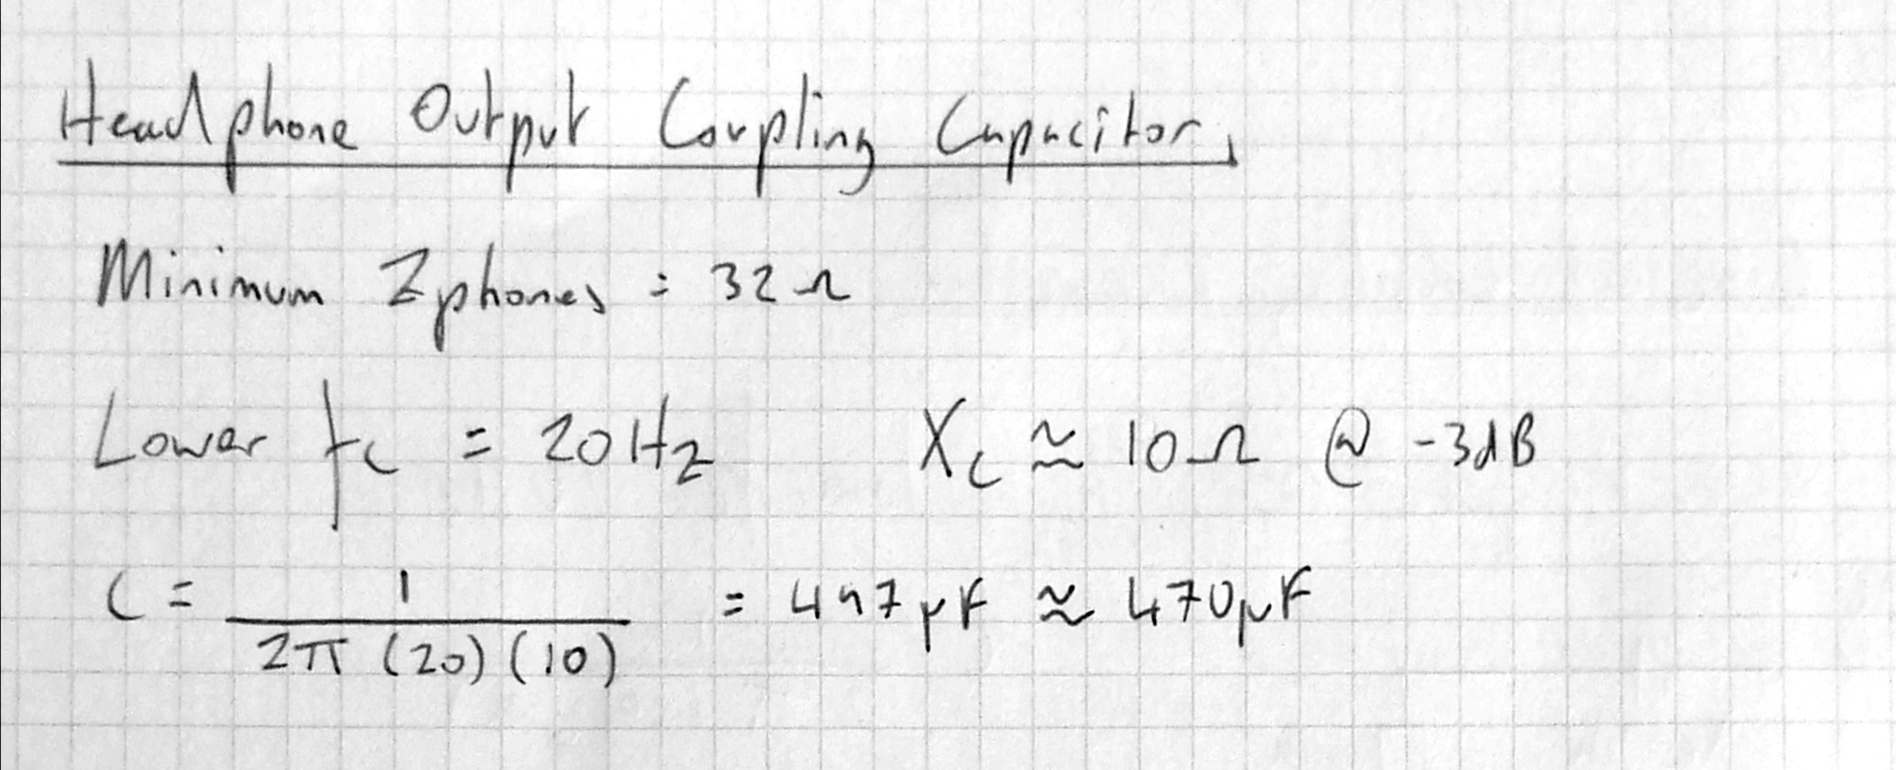 Headphone Output Coupling Capacitor,
Minimum Zphones = 32Ω
Lower fc = 20Hz Xc ≈ 10Ω @ -3dB
C = 1 / 2π (20) (10) = 497µF ≈ 470µF